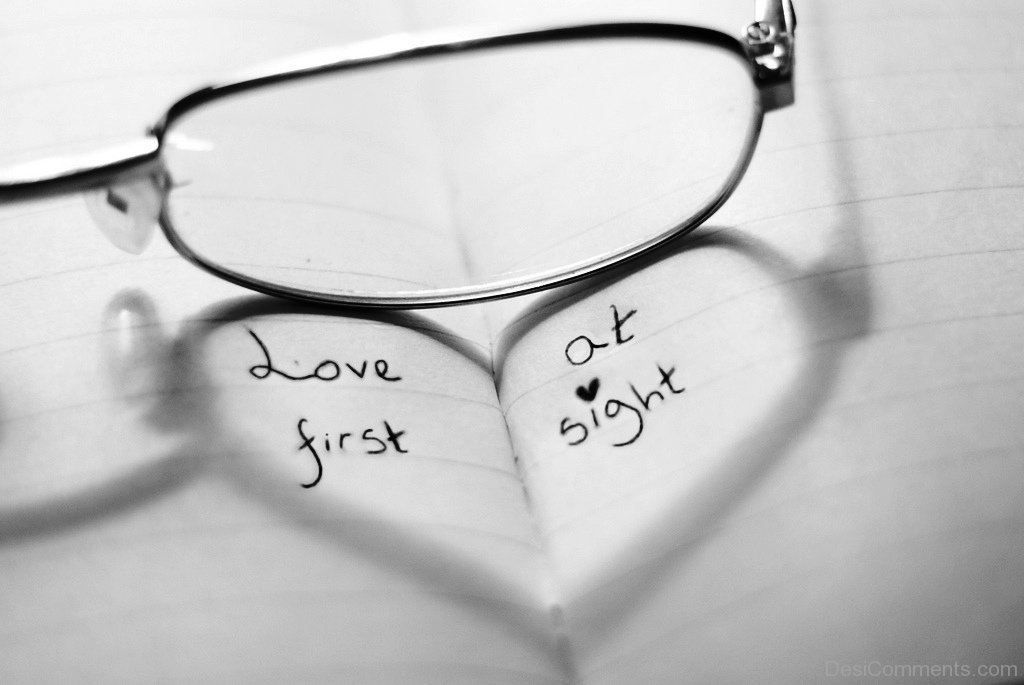 Love at
first sight
DesiComments.com